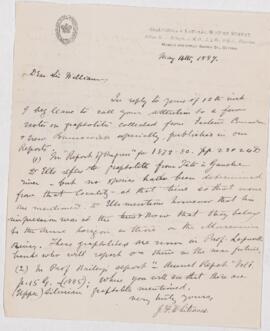 GEOLOGICAL & NATURAL HISTORY SURVEY
May 14th, 1887.
Dear Sir William,
In reply to yours of 12th inst
I beg leave to call your attention to a few
notes on graptolites collected from Eastern
New Brunswick especially, published in our
Reports.
(1) In "Report of Progress" for 1879-80. pp
Mr Ells refers to graptolites from
river - but no species had been determined
from that locality at that time so that none
are mentioned. Mr Ells mentions however that his
impression was at the time that they belong
to the same horizon as those on the
River. These graptolites are now in Prof. Lapworth's
hands who will report on them in the near future.
(2) In Prof Bailey's report "Annual Report" Vol I
p. 15 G. (1885); where you will see that there are
(Upper) Silurian graptolites mentioned.
Very truly yours,
J F Whiteaves